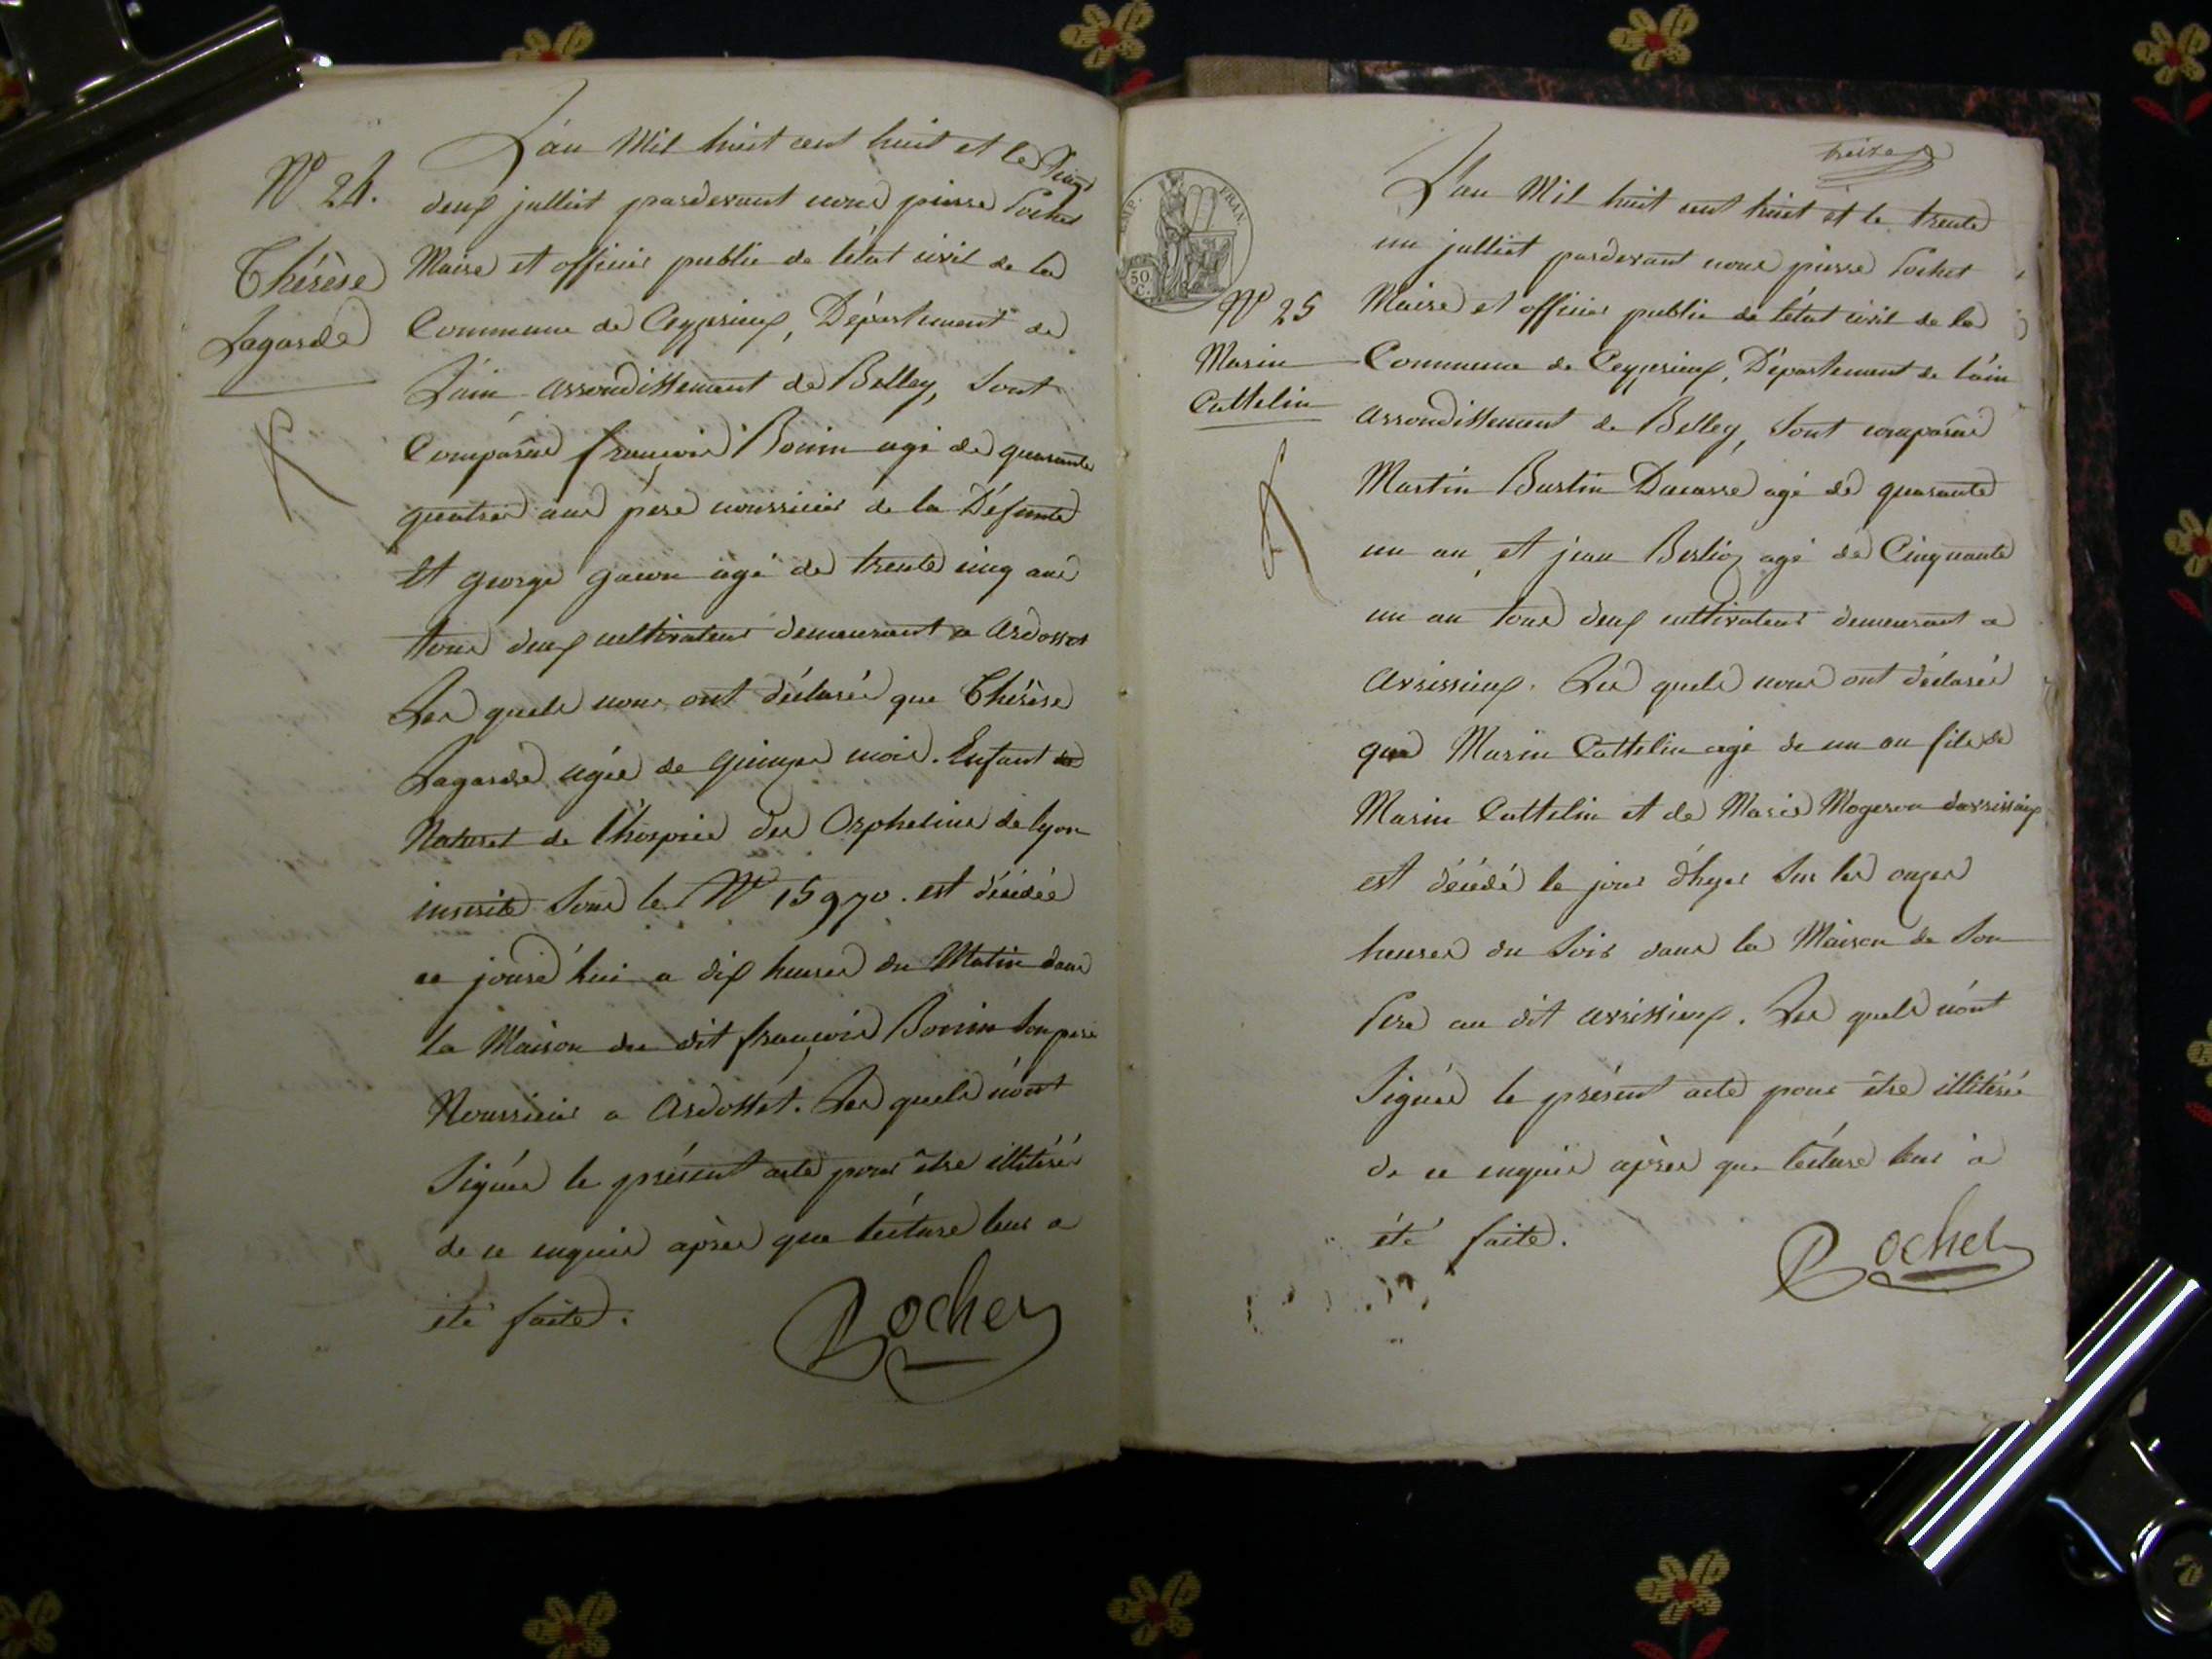 N° 24.
Thérèse
Lagarde
L'an Mil huit cent huit et le vingt
deux julliet pardevant nous pierre Pochet
Maire et officier public de l'état civil de la
Commune de Ceyzerieux, Département de
L'ain arrondissement de Belley, Sont
Comparus françois Bonin agé de quarante
quatre ans père nourricier de la Défunte
Et george gacon agé de trente cinq ans
tous deux cultivateurs demeurant a Ardosset
Les quels nous ont déclarés que Thérèse
Lagarde agée de Quinze mois. Enfant
Naturel de l'hospice des Orphelins de lyon
inscrite Sous le N° 15970. est décédée
ce jourd'hui a dix heures du Matin dans
la Maison du dit françois Bonin Son pere
Nourricier a Ardosset. Les quels n'ont
Signés le présent acte pour être illitérés
de ce enquis après que lécture leur a
été faite.
Pochet
treize
IMP. FRAN.
50 C.
N° 25
Marin
Cattelin
L'an Mil huit cent huit et le trente
un julliet pardevant nous pierre Pochet
Maire et officier public de l'état civil de la
Commune de Ceyzerieux, Département de l'ain
arrondissement de Belley, Sont comparus
Martin Burtin Ducarre agé de quarante
un an, et jean Berlioz agé de Cinquante
un an tous deux cultivateurs demeurant a
avrissieux. Les quels nous ont déclarés
que Marin Cattelin agé de un an fils de
Marin Cattelin et de Marie Mogeron davrissieux
est décédé le jour d'hyer Sur les onzes
heures du Soir dans la Maison de Son
Pere au dit avrissieux. Les quels n'ont
Signés le présent acte pour être illitérés
de ce enquis après que lécture leur a
été faite.
Pochet